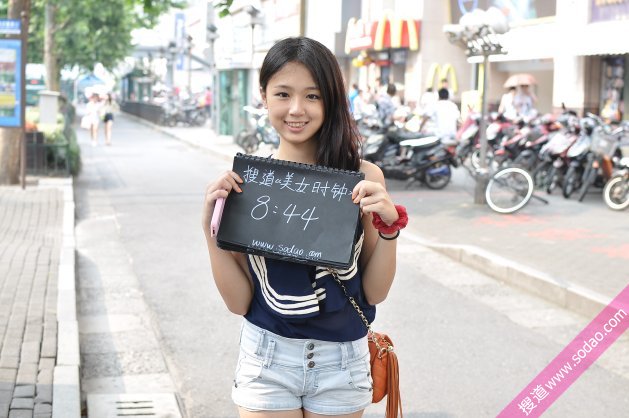 搜道の美女时钟
8:44
www.sodao.com
搜道 www.sodao.com